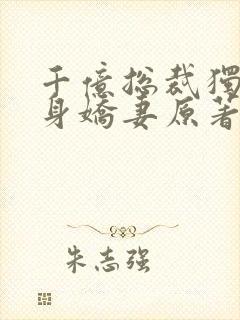 千億總裁獨
身嬌妻原著
朱志强